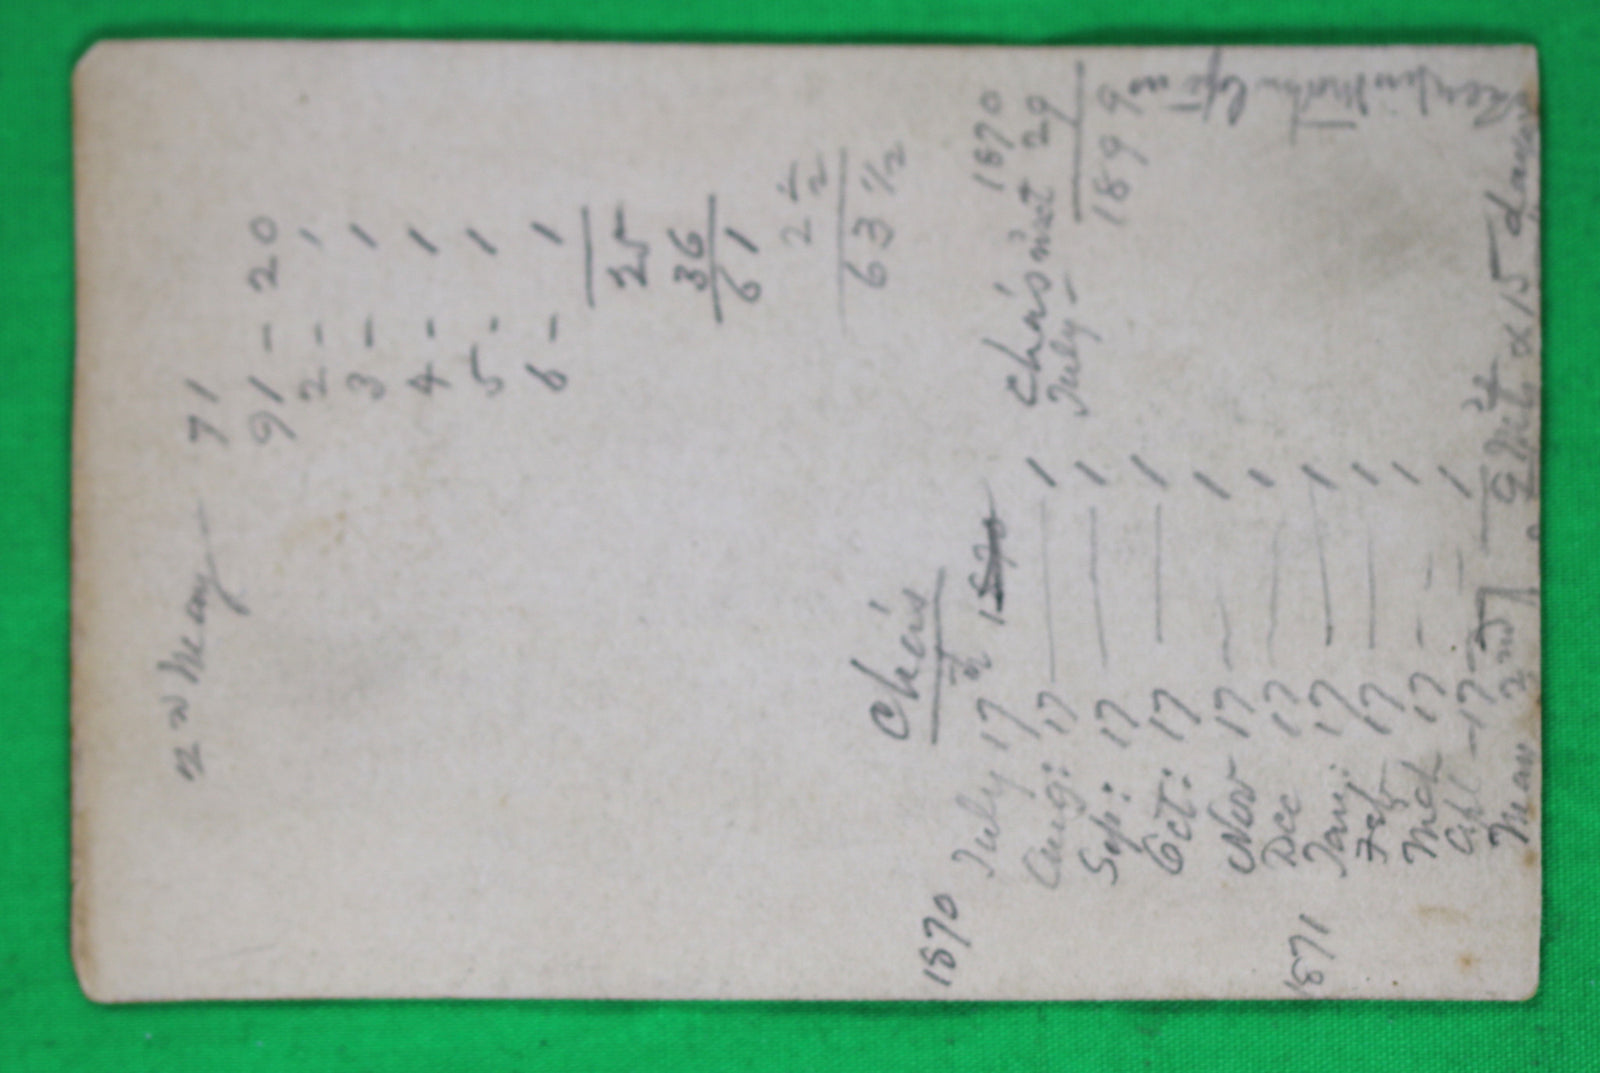 71
91 - 20
2 - 1
3 - 1
4 - 1
5 - 1
6 - 1
25
36
61
2 1/2
63 1/2
Cha's
1870 July 17th
Aug: 17 — 1
Sep: 17 — 1
Oct: 17 — 1
Nov 17 — 1
Dec 17 — 1
1871 Jany: 17 — 1
Feb 17 — 1
Mch 17 — 1
Apl - 17 — 1
May 2nd
9 Mths & 15 days
1870
Cha's met 29
July -
1899